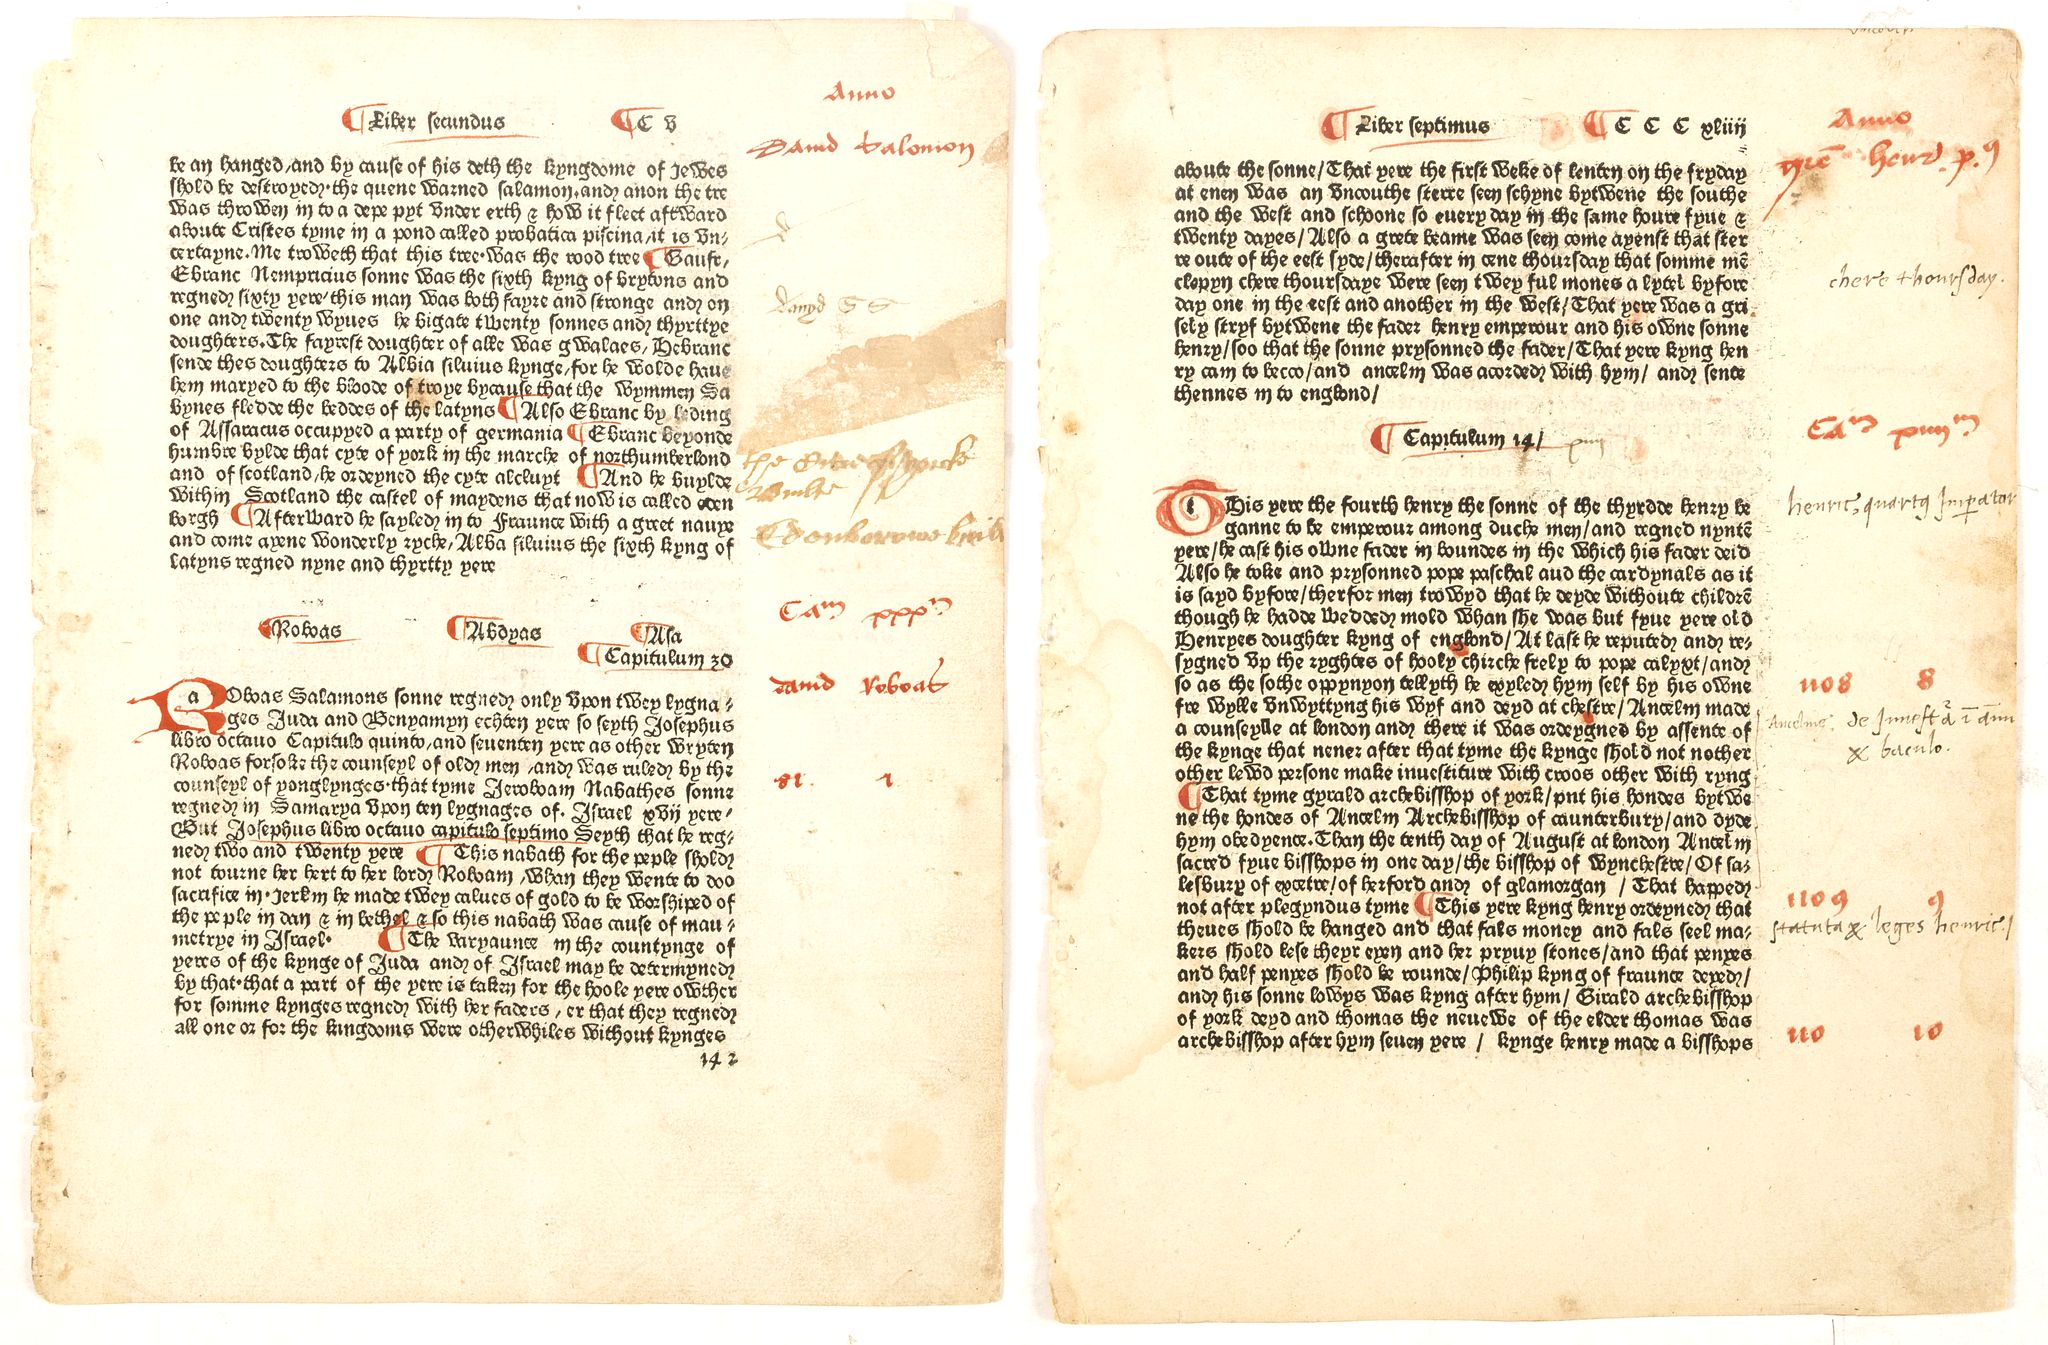 Anno
Liber secundus C v
Dauid Salomon
be an hanged/and by cause of his deth the kyngdome of Jewes
shold be destroyed· the quene warned salamon·and anon the tre
was throwen in to a depe pyt vnder erth & how it fleet aftward
aboute Cristes tyme in a pond called probatica piscina/it is vn-
certayne. Me troweth that this tree·was the rood tree Gaufr,
Ebranc Nempricius sonne was the sixth kyng of brytons and
regned sixty yere/this man was both fayre and stronge and on
one and twenty wyues he bigate twenty sonnes and thyrttye
doughters. The fayrest doughter of alle was gwalaes, Hebranc
sende thes doughters to Albia siluius kynge,for he wolde haue
hem maryed to the blode of troye bycause that the wymmen Sa
bynes fledde the beddes of the latyns Also Ebranc by leding
of Assaracus occupyed a party of germania Ebranc beyonde
humbre bylde that cyte of york in the marche of northumberlond
and of scotland,he ordeyned the cyte alcluyt And he buylde
within Scotland the castel of maydens that now is called eden
borgh Afterward he sayled in to Fraunce with a greet nauye
and come ayene wonderly ryche, Alba siluius the sixth kyng of
latyns regned nyne and thyrtty yere
Dauyd
the
Buylte
Edonborowe
Cam xxxm
Roboas Abdyas Asa
Capitulum 30
dauid Roboas
ROboas Salamons sonne regned only vpon twey lygna-
ges Juda and Benyamyn echten yere so seyth Josephus
libro octauo Capitulo quinto,and seuenten yere as other wryten
Roboas forsoke the counseyl of old men ,and was ruled by the
counseyl of yonglynges·that tyme Jeroboam Nabathes sonne
regned in Samarya vpon ten lygnages of. Israel xvij yere·
81. 1
But Josephus libro octauo capitulo septimo Seyth that he reg-
ned two and twenty yere This nabath for the peple shold
not tourne her hert to her lord Roboam ,whan they wente to doo
sacrifice in·Jerlm he made twey calues of gold to be worshiped of
the peple in dan & in bethel & so this nabath was cause of mau-
metrye in Israel· The varyaunce in the countynge of
yeres of the kynge of Juda and of Israel may be determyned
by that·that a part of the yere is taken for the hoole yere owther
for somme kynges regned with her faders , er that they regned
all one or for the kingdoms were otherwhiles without kynges
14 2
Anno
Liber septimus C C C xliiij
henr. p.
aboute the sonne/That yere the first weke of lenten on the fryday
at euen was an vncouthe sterre seen schyne bytwene the southe
and the west and schoone so euery day in the same houre fyue &
twenty dayes/Also a grete beame was seen come ayenst that ster
re oute of the eest syde/therafter in cene thoursday that somme mē
clepyn chere thoursdaye were seen twey ful mones a lytel byfore
chere thoursday.
day one in the eest and another in the west/That yere was a gri
sely stryf bytwene the fader henry emperour and his owne sonne
henry/soo that the sonne prysonned the fader/That yere kyng hen
ry cam to becco/and ancelm was acorded with hym/ and sente
thennes in to englond/
Cam xiiijm
Capitulum 14/ xiiij
THis yere the fourth henry the sonne of the thyrdde henry be
henric9 quart9 Imperator
ganne to be emperour among duche men/and regned nyntē
yere/he cast his owne fader in boundes in the which his fader deid
Also he toke and prysonned pope paschal aud the cardynals as it
is sayd byfore/therfor men trowyd that he deyde withoute childrē
though he hadde wedded mold whan she was but fyue yere old
Henryes doughter kyng of englond/At last he reputed and re-
sygned vp the ryghtes of hooly chirche frely to pope calyxt/and
so as the sothe oppynyon tellyth he exyled hym self by his owne
1108 8
fre wylle vnwyttyng his wyf and deyd at chestre/Ancelm made
a counseylle at london and there it was ordeygned by assente of
the kynge that neuer after that tyme the kynge shold not nother
& baculo.
other lewd persone make inuestiture with croos other with ryng
That tyme gyrald archebisshop of york/put his hondes bytwe
ne the hondes of Ancelm Archebisshop of caunterbury/and dyde
hym obedyence. Than the tenth day of August at london Ancelm
sacred fyue bisshops in one day/the bisshop of wynchestre/Of sa-
lesbury of excetre/of herford and of glamorgan / That happed
not after plegyndus tyme This yere kyng henry ordeyned that
1109 9
theues shold be hanged and that fals money and fals seel ma-
statuta & leges henric./
kers shold lese theyr eyen and her pryuy stones/and that penyes
and half penyes shold be rounde/Philip kyng of fraunce deyed/
and his sonne lowys was kyng after hym/ Girald archebisshop
of york deyd and thomas the neuewe of the elder thomas was
archebisshop after hym seuen yere / kynge henry made a bisshops
1110 10